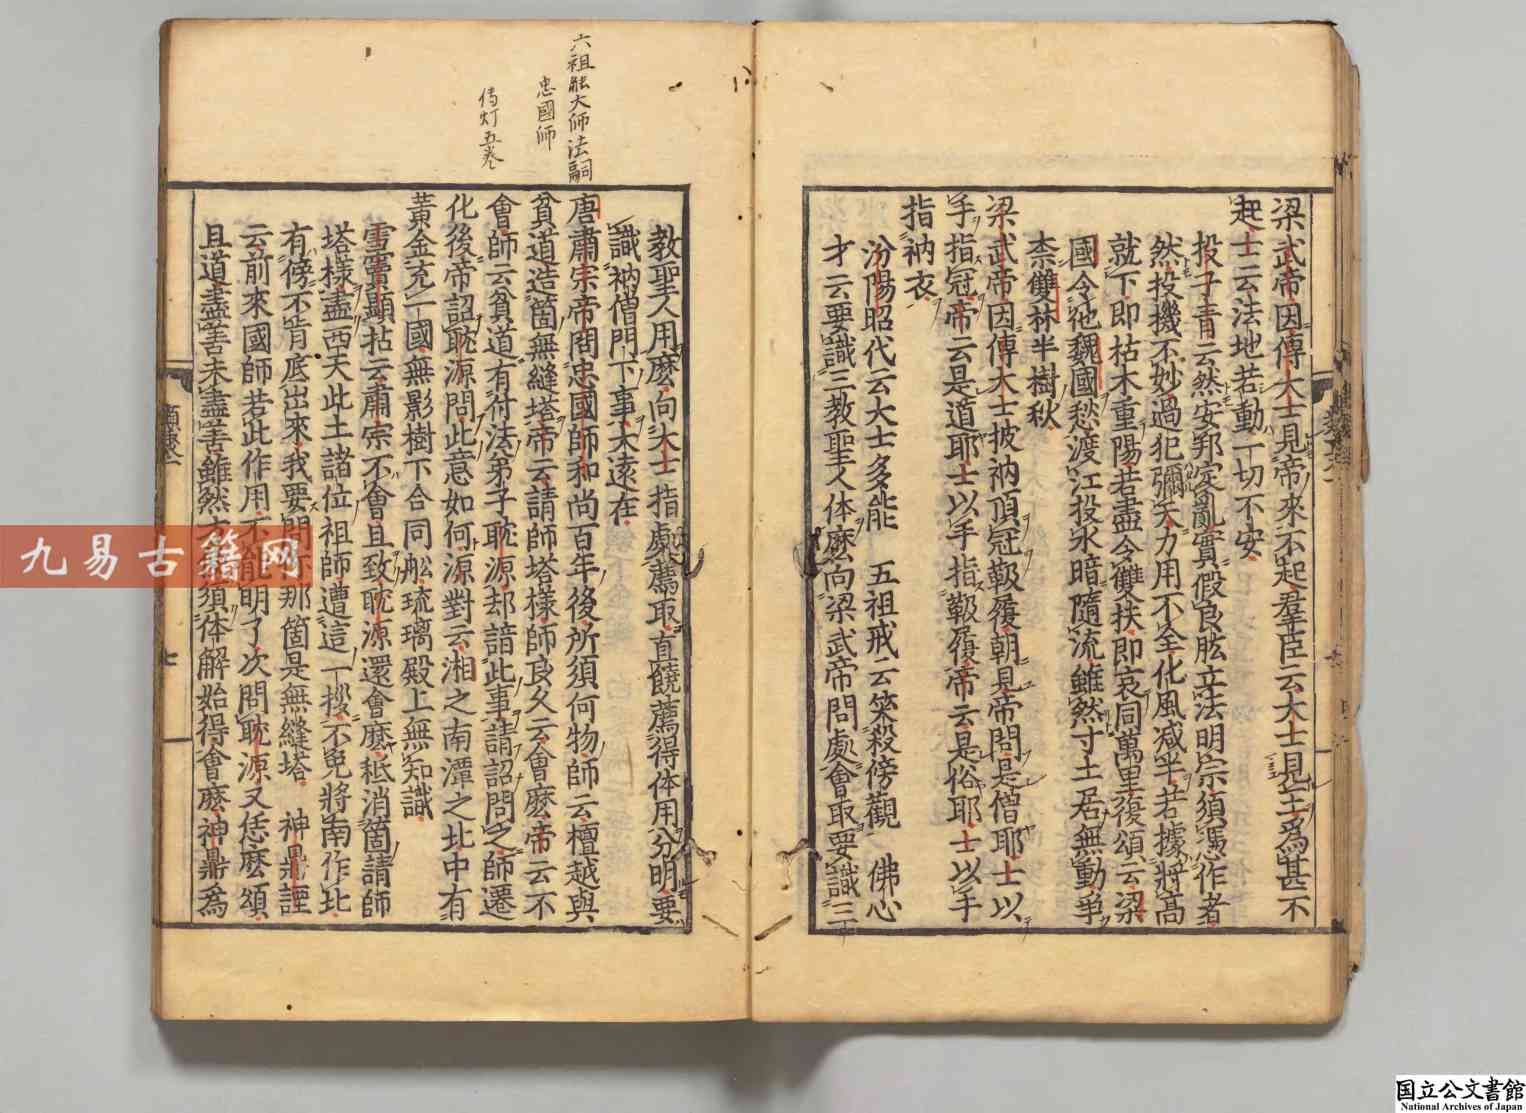 梁武帝因傳大士見帝來不起羣臣云大士見王爲甚不
起士云法地若動一切不安
投子青云然安邦定亂實假良肱立法明宗須憑作者
然投機不妙過犯彌天力用不全化風减半若據將高
就下即枯木重陽若盡令雙扶即哀同萬里復頌云梁
國令祂魏國愁渡江投水暗隨流雖然寸土居無動爭
柰雙林半樹秋
梁武帝因傳大士披衲頂冠靸履朝見帝問是僧耶士以
手指冠帝云是道耶士以手指靸履帝云是俗耶士以手
指衲衣
汾陽昭代云大士多能 五祖戒云笑殺傍觀 佛心
才云要識三教聖人体麽向梁武帝問處會取要識三
教聖人用麽向大士指處薦取直饒薦得体用分明要
識衲僧門下事大遠在
唐肅宗帝問忠國師和尚百年後所須何物師云檀越與
貧道造箇無縫塔帝云請師塔樣師良久云會麽帝云不
會師云貧道有付法弟子耽源却諳此事請詔問之師遷
化後帝詔耽源問此意如何源對云湘之南潭之北中有
黃金充一國無影樹下合同舩琉璃殿上無知識
雪竇顯拈云肅宗不會且致耽源還會麽秪消箇請師
塔樣盡西天此土諸位祖師遭這一拶不免將南作北
有傍不肯底出來我要問 那箇是無縫塔 神鼎諲
云前來國師若此作用不能明了次問耽源又恁麽頌
且道盡善未盡善雖然 須体解始得會麽神鼎爲
六祖能大師法嗣
忠國師
傳灯五卷
九易古籍网
国立公文書館
National Archives of Japan